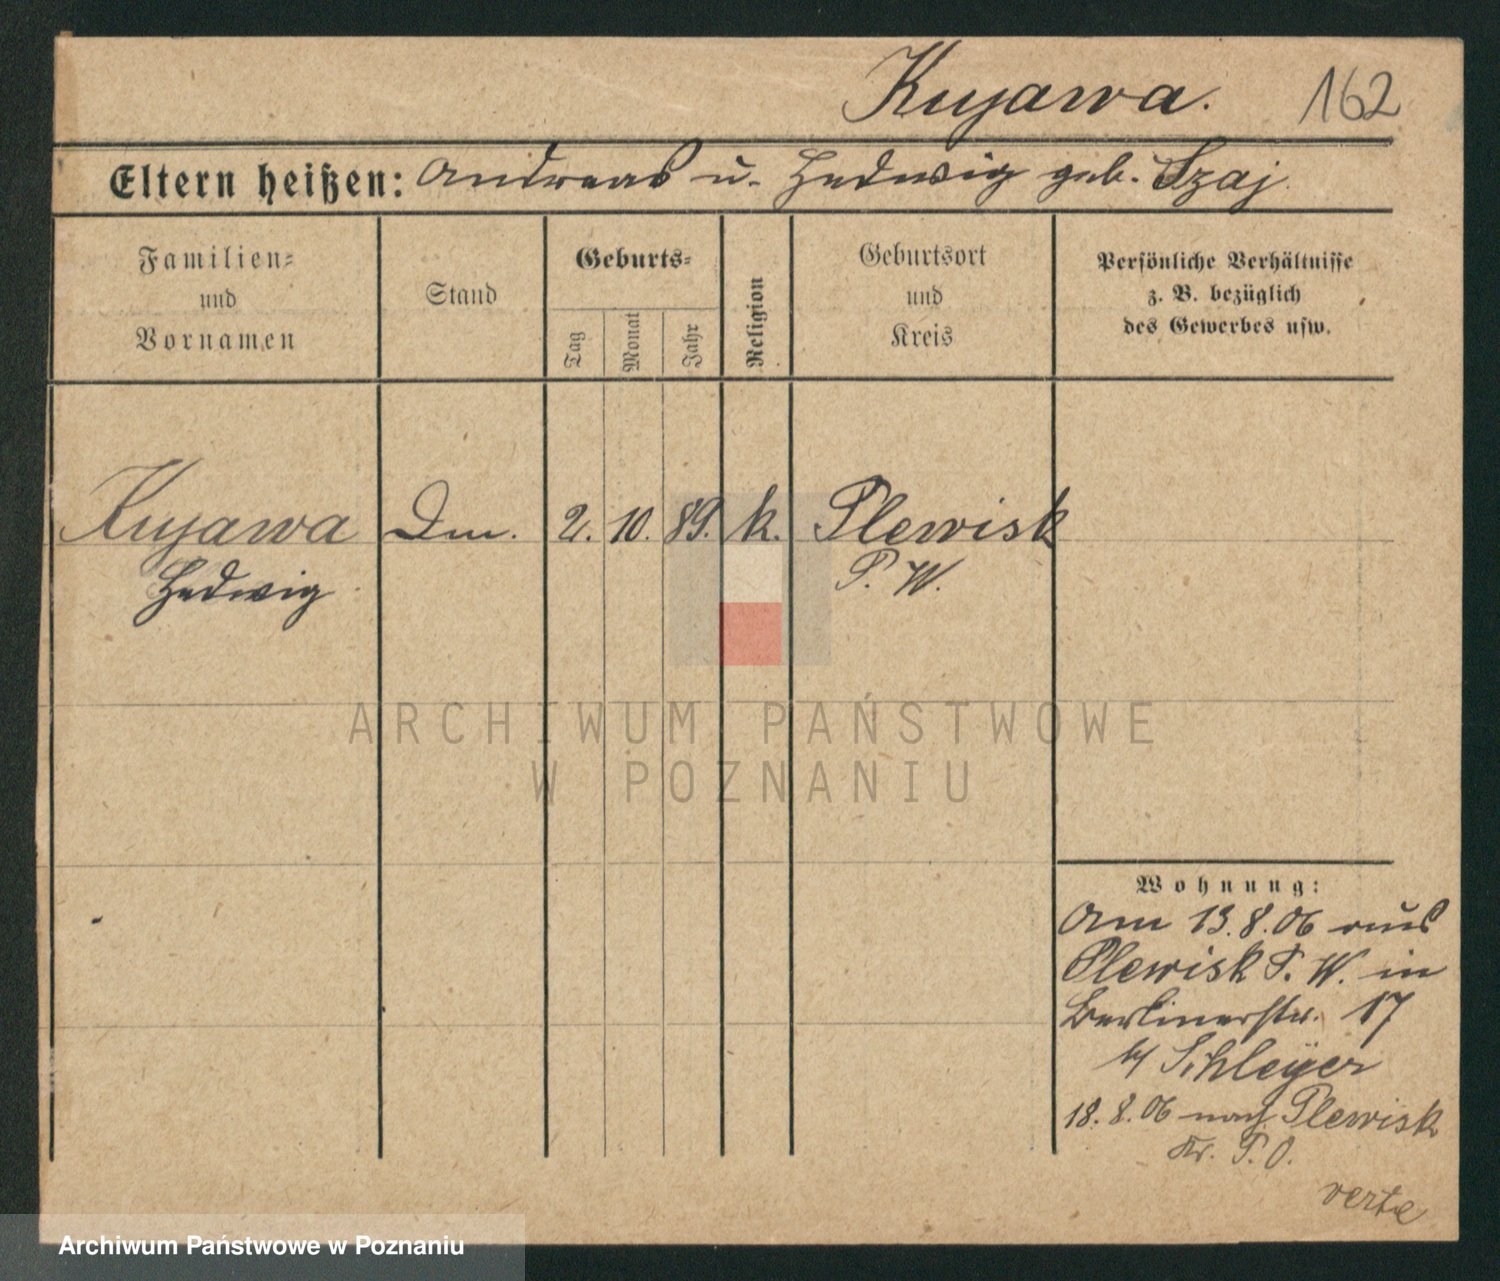 Kujawa.
162
Eltern heißen: Andreas u. Hedwig geb. Szaj
Familien-
und
Vornamen
Stand
Geburts-
Tag
Monat
Jahr
Religion
Geburtsort
und
Kreis
Persönliche Verhältnisse
z. B. bezüglich
des Gewerbes usw.
Kujawa Dm. 2. 10. 89. k. Plewisk
Hedwig P. W.
ARCHIWUM PAŃSTWOWE
W POZNANIU
Wohnung:
Am 13.8.06 aus
Plewisk P. W. in
Berlinerstr. 17
b/ Schleyer
18.8.06 nach Plewisk
Kr. P. O.
verte
Archiwum Państwowe w Poznaniu